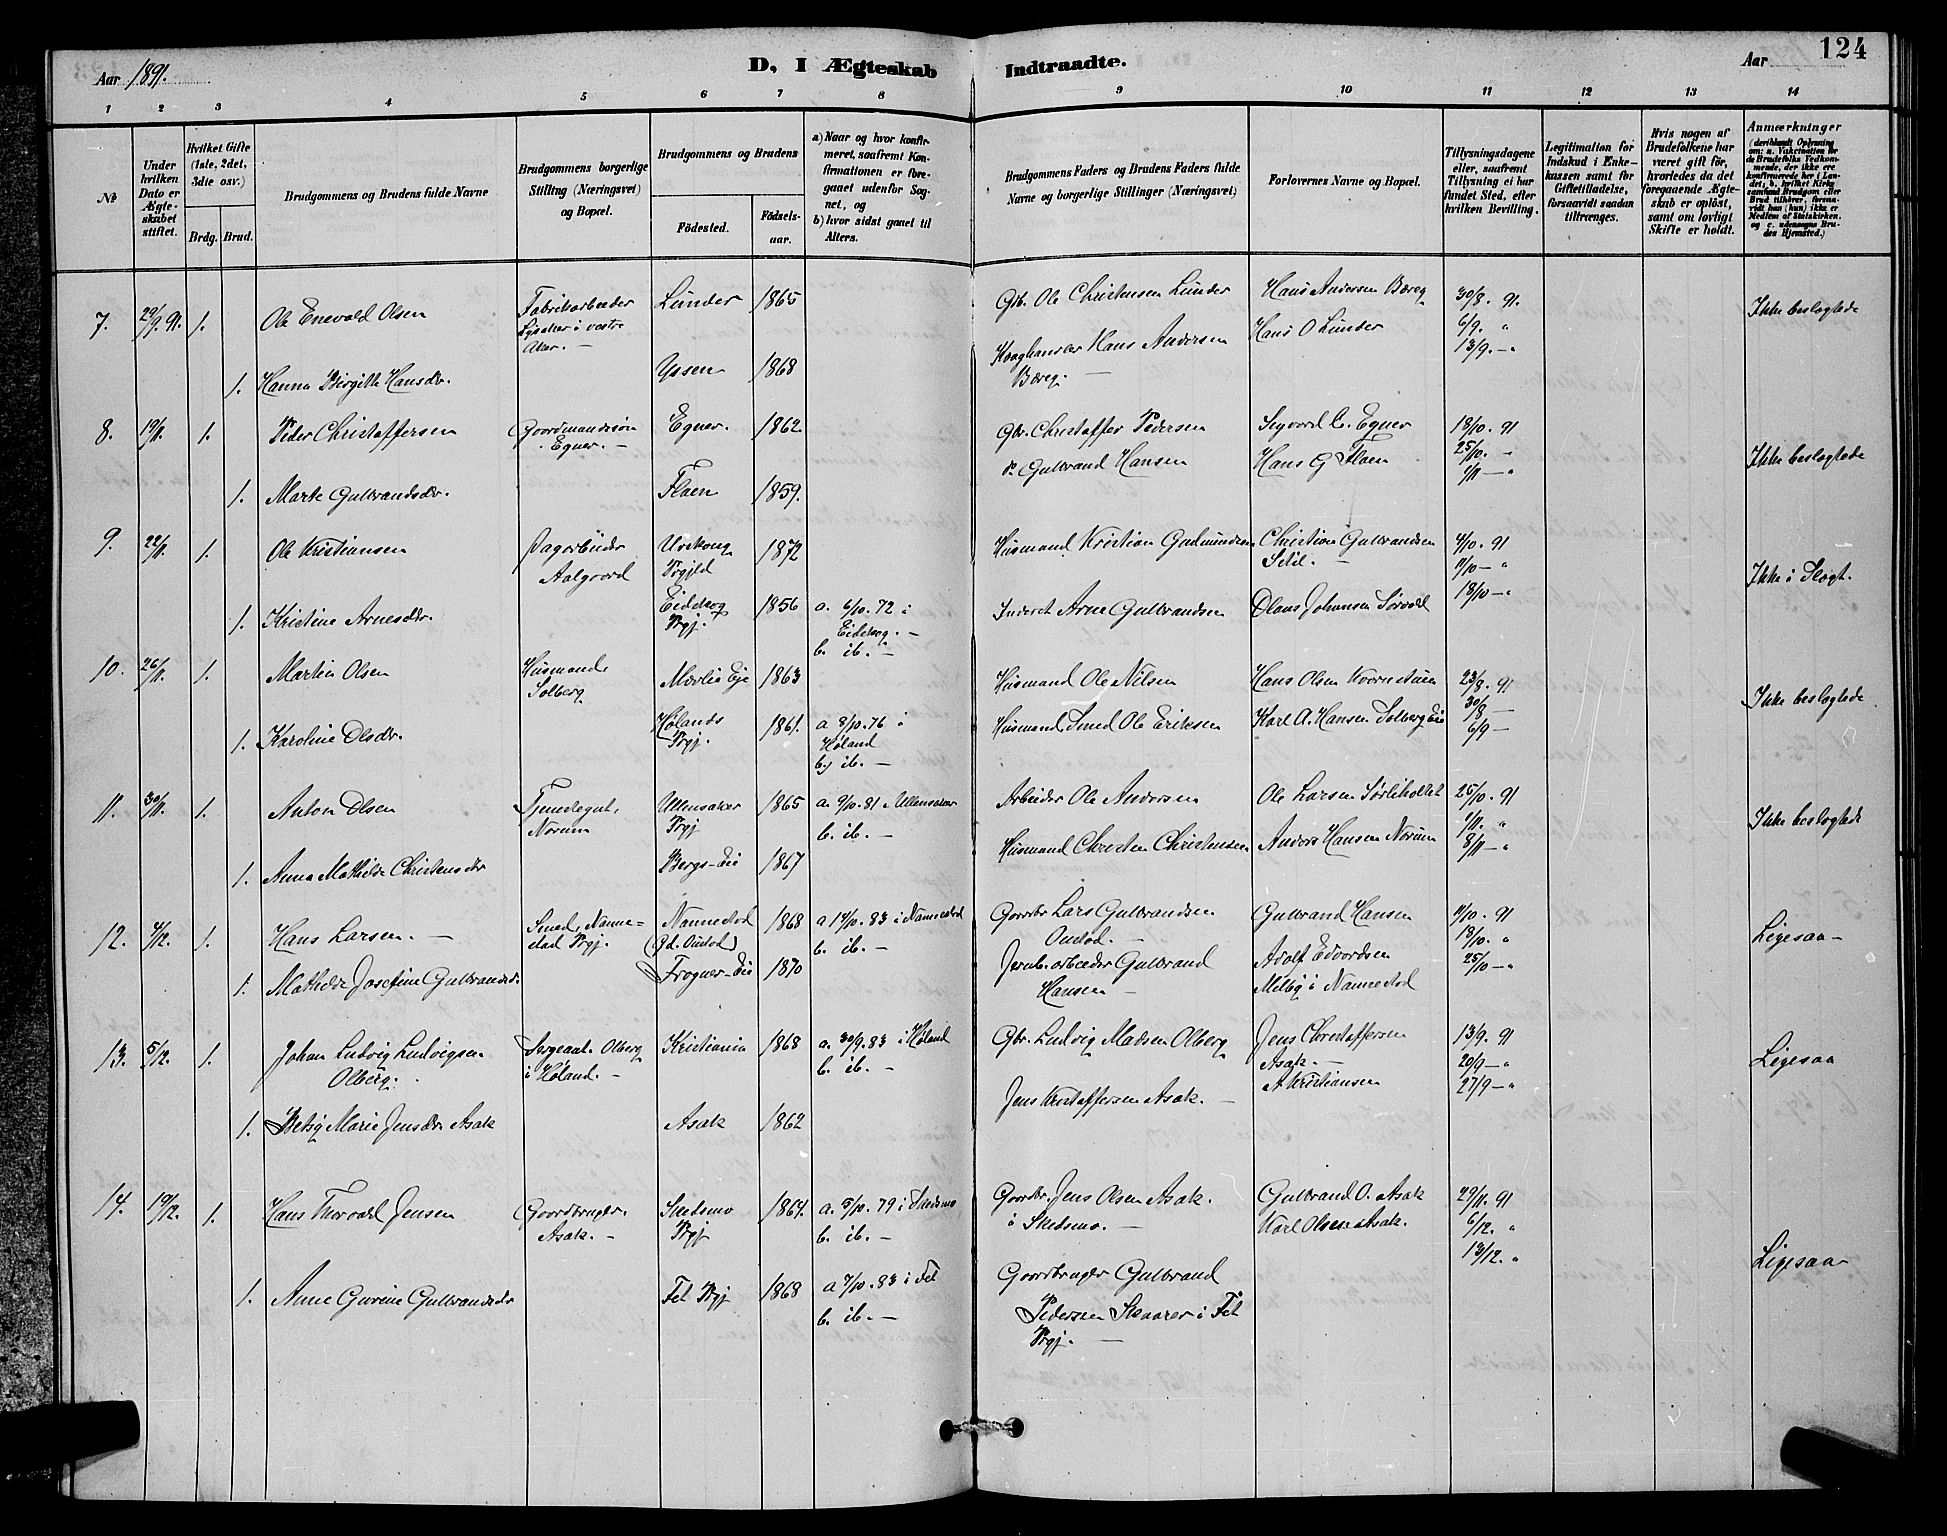 Aar 1891.
D. I Ægteskab
Indtraadte.
Aar
124
1 2 3 4 5 6 7 8 9 10 11 12 13 14
No
Under hvilken Dato er Ægteskabet stiftet.
Hvilket Gifte (1ste, 2det, 3die osv.)
Brdg. Brud.
Brudgommens og Brudens fulde Navne
Brudgommens borgerlige Stilling (Næringsvei) og Bopæl.
Brudgommens og Brudens
Fødested.
Fødselsaar.
a) Naar og hvor konfirmeret, saafremt Konfirmationen er foregaaet udenfor Sognet, og
b) hvor sidst gaaet til Alters.
Brudgommens Faders og Brudens Faders fulde Navne og borgerlige Stillinger (Næringsvei)
Forlovernes Navne og Bopæl.
Tillysningsdagene eller, saafremt Tillysning ei har fundet Sted, efter hvilken Bevilling.
Legitimation for Indskud i Enkekassen samt for Giftetilladelse, forsaavidt saadan tiltrænges.
Hvis nogen af Brudefolkene har været gift før, hvorledes da det foregaaende Ægteskab er opløst, samt om lovligt Skifte er holdt.
Anmærkninger (deriblandt Oplysning om: a. Vakcination for de Brudefolks Vedkommende, der ikke er konfirmerede her i Landet; b. hvilket Kirkesamfund Brudgom eller Brud tilhører, forsaavidt han (hun) ikke er Medlem af Statskirken, og c. udensogns Brudes Hjemsted.)
7. 29/9 91. 1. Ole Enevald Olsen Fabrikarbeider Lysaker i vestre Aker. – Lunder 1865 Gbr. Ole Christensen Lunder Hans Andersen Bæreg 30/8. 91. Ikke beslægtede
Hans O Lunder 6/9. "
13/9. – "
1. Hanna Birgitte Hansdr. Yssen 1868 Hans Andersen Bæreg. –
8. 19/11. 1. Peder Christoffersen Gaardmandssøn Egner. – Egner. 1862. Gbr. Christoffer Pedersen Sigvard C. Egner 18/10. 91 Ikke beslægtede
1. Marte Gulbrandsdr. Flaen 1859. Do Gulbrand Hansen Hans G Flaen 25/10. –
1/11 – "
9. 22/11. 1. Ole Kristiansen Dagarbeider Aalgaard Urskoug Prgjld 1872 Husmand Kristian Gudmundsen Christian Gulbrandsen 4/10. 91 Ikke i Slægt.
11/10 – "
1. Kristine Arnesdr. Eidskog Prgj. 1856 a. 6/10. 72 i Eidskog. – b. ib. – Inderst Arne Gulbrandsen Olaus Johansen Sørvald 18/10 – "
10. 26/11. 1. Martin Olsen Husmand, Solberg Mærlis Eje 1863 Husmand Ole Nilsen Hans Olsen 23/8. 91 Ikke beslægtede
30/8 –
1. Karoline Olsdr. Hølands Prgj. 1861. a 8/10. 76 i Høland b) ib. – Husmand Smed Ole Eriksen Karl A. Hansen Solberg Eie 6/9 –
11. 30/11. 1. Anton Olsen Tjenestegut, Norum Ullensaker Prgj 1865 a. 9/10. 81 i Ullensaker b. ib. – Arbeider Ole Andersen Ole Larsen Sørliholtet 25/10. 91 Ikke beslægtede
1/11. "
1. Anna Mathilde Christensdr Bergs-Eie 1867 Husmand Christen Christensen Anders Hansen Norum 8/11 – "
12. 4/12. 1. Hans Larsen. – Smed, Nannestad Prgj. Nannestad (Gd. Oustad) 1868 a 14/10. 83 i Nannestad b. ib. – Gaardbr Lars Gulbrandsen Oustad. – Gulbrand Hansen 11/10. 91 Ligesaa –
18/10. "
1. Mathilde Josefine Gulbrandsdr. Frogner-Eie 1870 Jernb. arbeider Gulbrand Hansen – Adolf Edvardsen Melby i Nannestad 25/10 – "
13. 5/12. 1. Johan Ludvig Ludvigsen Olberg. Sergeant. Olberg i Høland. – Kristiania 1868 a. 30/9. 83 i Høland b. ib. – Gbr. Ludvig Madsen Olberg Jens Christoffersen Asak. – 13/9. 91 Ligesaa
20/9 – "
1. Betsy Marie Jensdr. Asak Asak 1862 Jens Kristoffersen Asak. – A Kristiansen 27/9 – "
14. 19/12. 1. Hans Thorvald Jensen Gaardbruger. Asak. – Skedsmo Prgj 1864. a. 5/10. 79 i Skedsmo b. ib. – Gaardbr. Jens Olsen Asak. i Skedsmo. – Gulbrand O. Asak 29/11. 91 Ligesaa
Karl Olsen Asak. 6/12. "
13/12. "
1. Anne Gurine Gulbrandsdr Fet Prgj 1868 a 7/10. 83 i Fet b. ib. – Gaardbruger Gulbrand Pedersen Skaarer i Fet Prgj. –